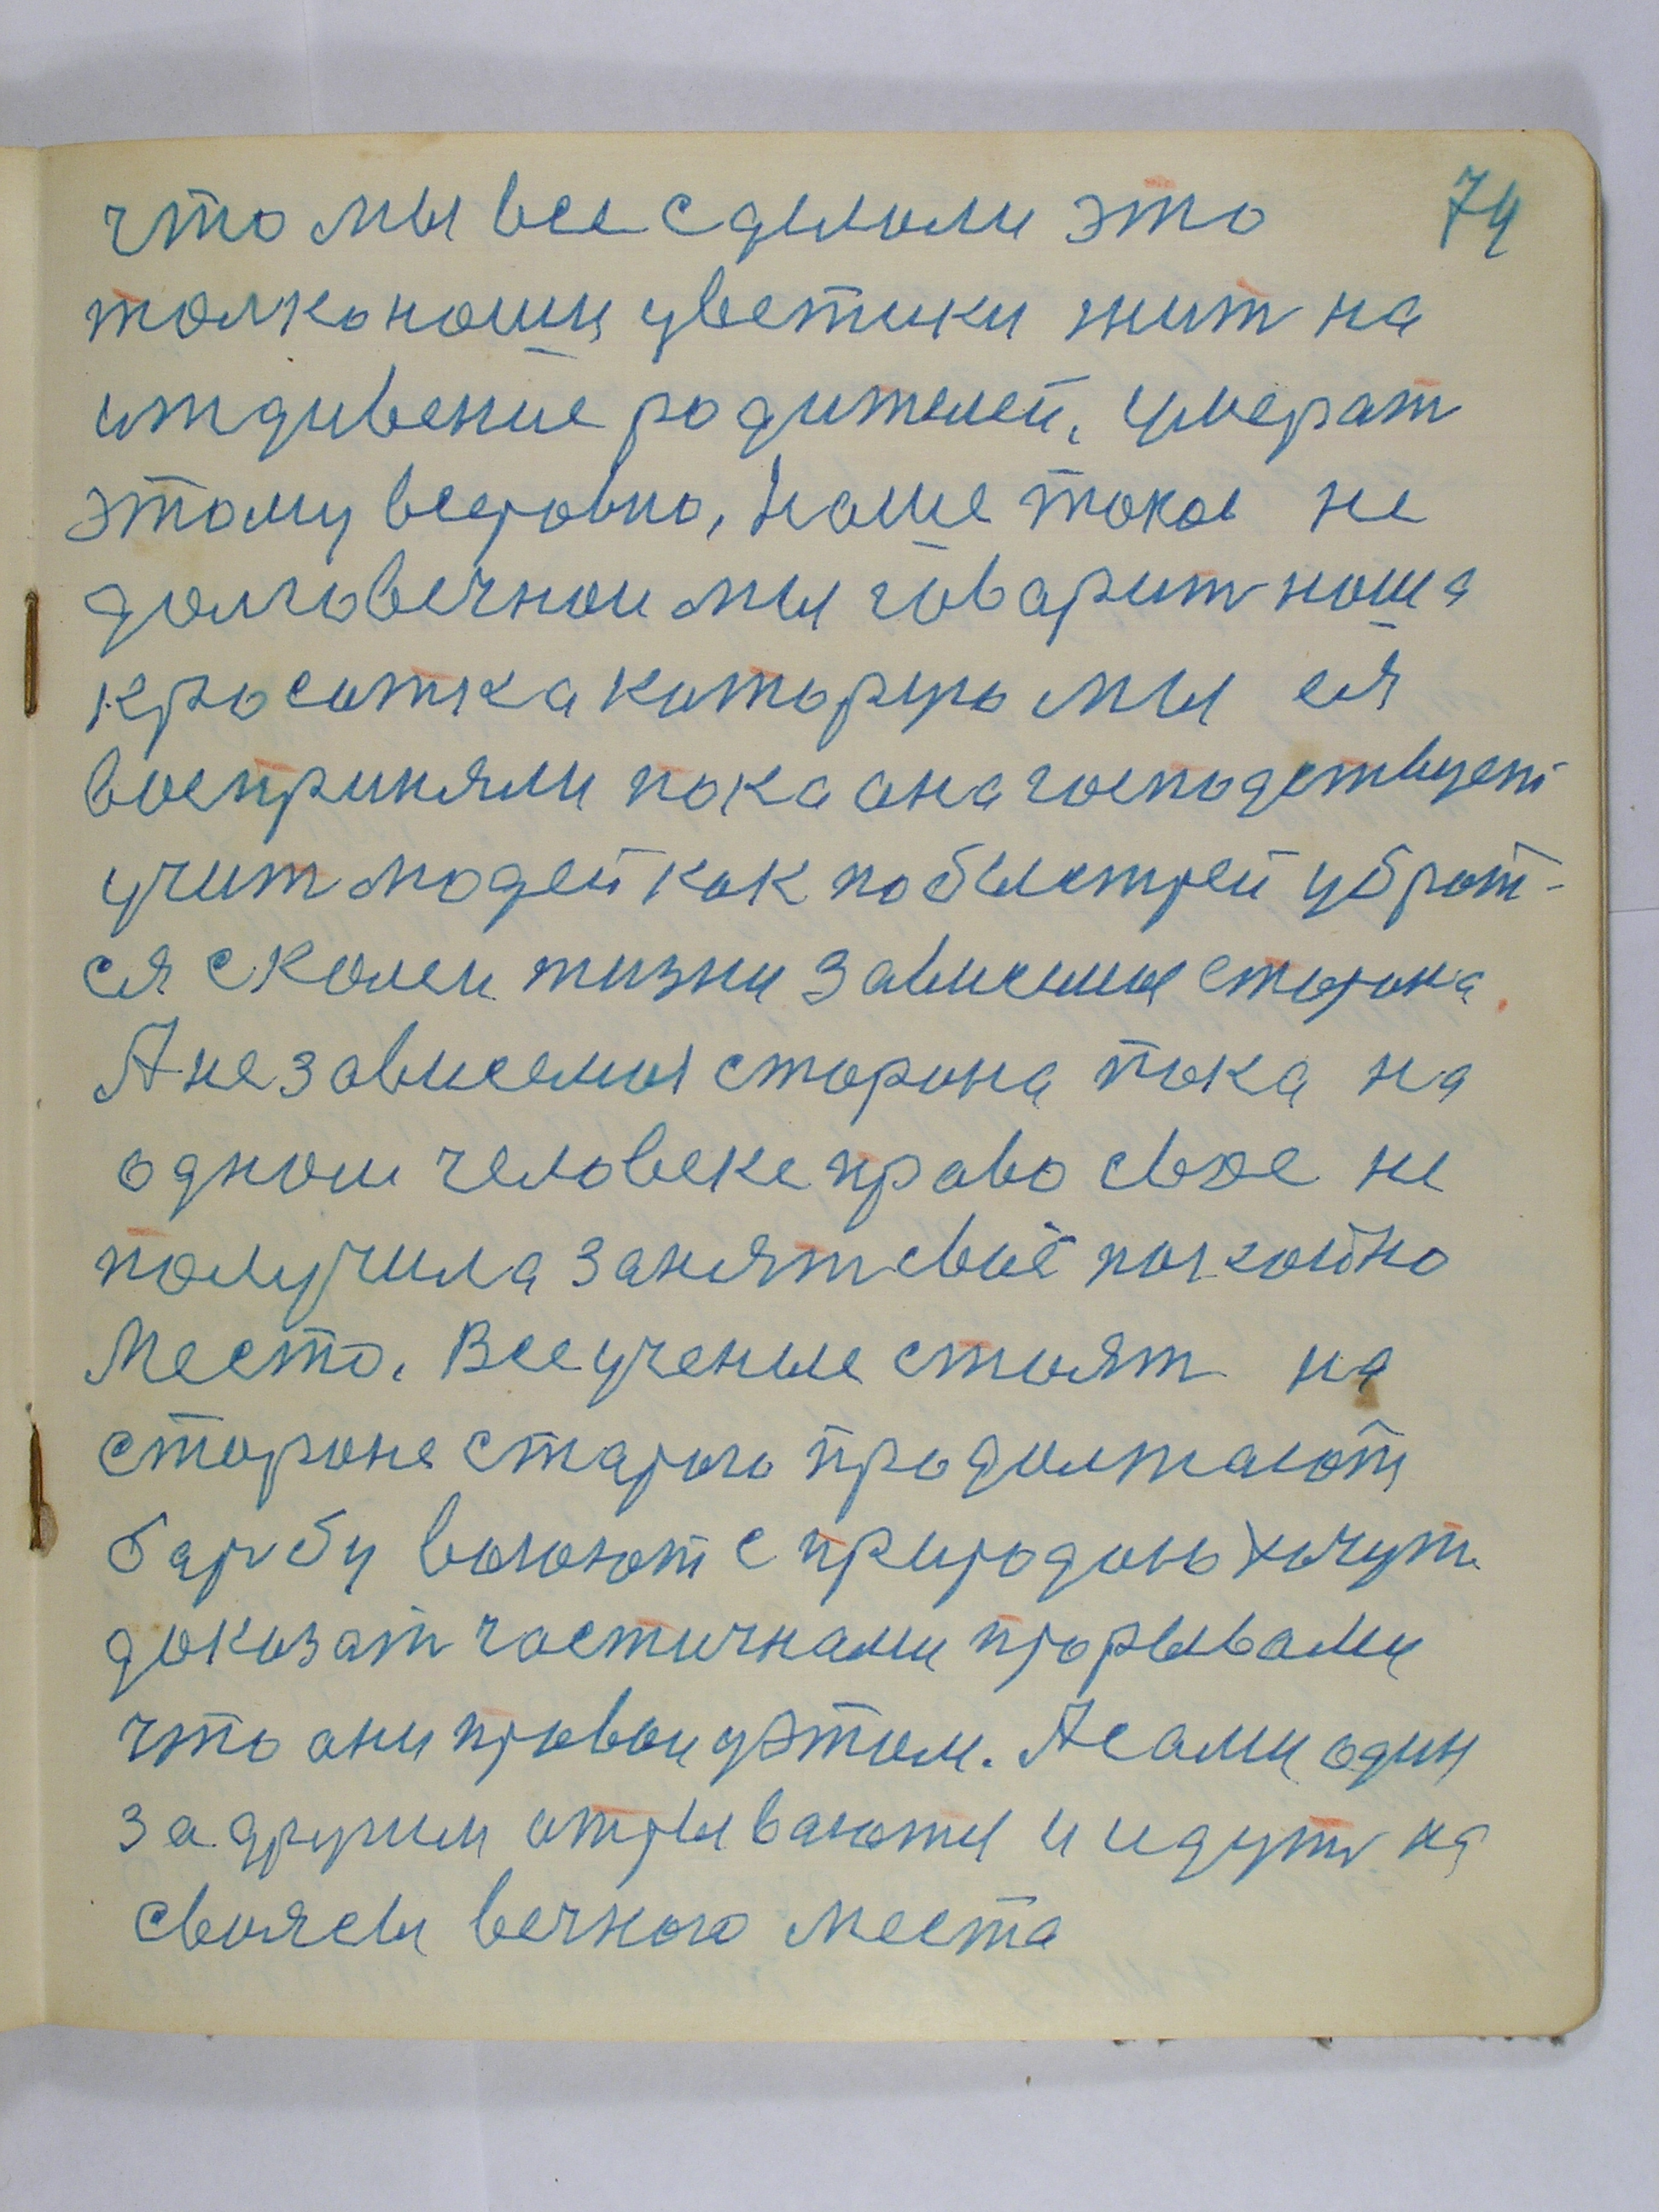 что мы все сделали это 74
толко наши цветики жит на
иждивение родителей, умерат
этому всеровно, наше такое не
долговечнои мы говарит наша
кроситка которую мы ея
восприняли пока она господствует
учит людей как побыстрей убрат-
ся с колеи жизни зависимые старона.
А независемоя старона пока на
одном человеке право свое не
получила занят своё покойно
место. Все ученые стоят на
стороне старого продолжают
барбу воюют с природою хочут
доказат частичнами прорывами
что ани правы у этом. А сами один
за другим отрываюты и идут на
свояси вечного места